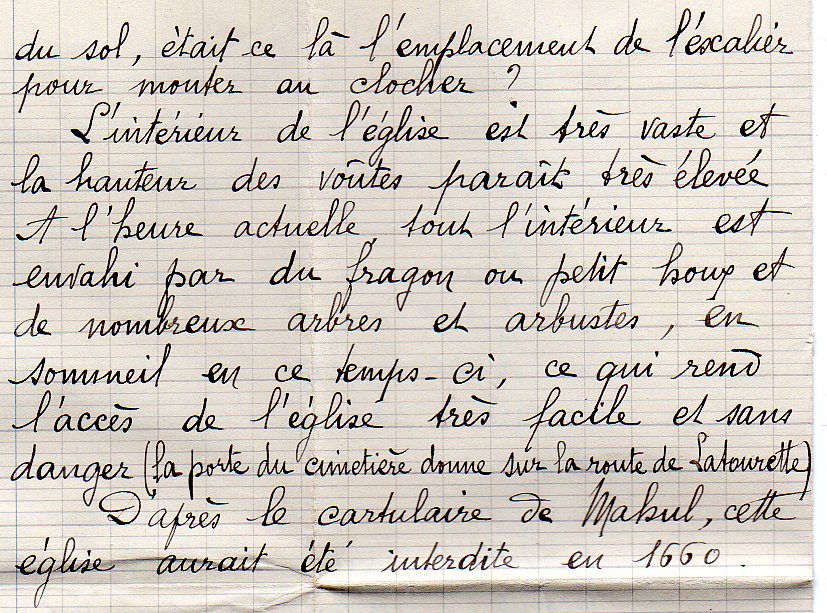 du sol, était ce là l'emplacement de l'éscaliér
pour monter au clocher ?
L'intérieur de l'église est très vaste et
la hauteur des voûtes paraît très élevée
A l'heure actuelle, tout l'intérieur est
envahi par du fragon ou petit houx et
de nombreux arbres et arbustes, en
sommeil en ce temps-ci, ce qui rend
l'accès de l'église très facile et sans
danger (la porte du cimetière donne sur la route de Latourette)
D'après le cartulaire de Mahul, cette
église aurait été interdite en 1660.